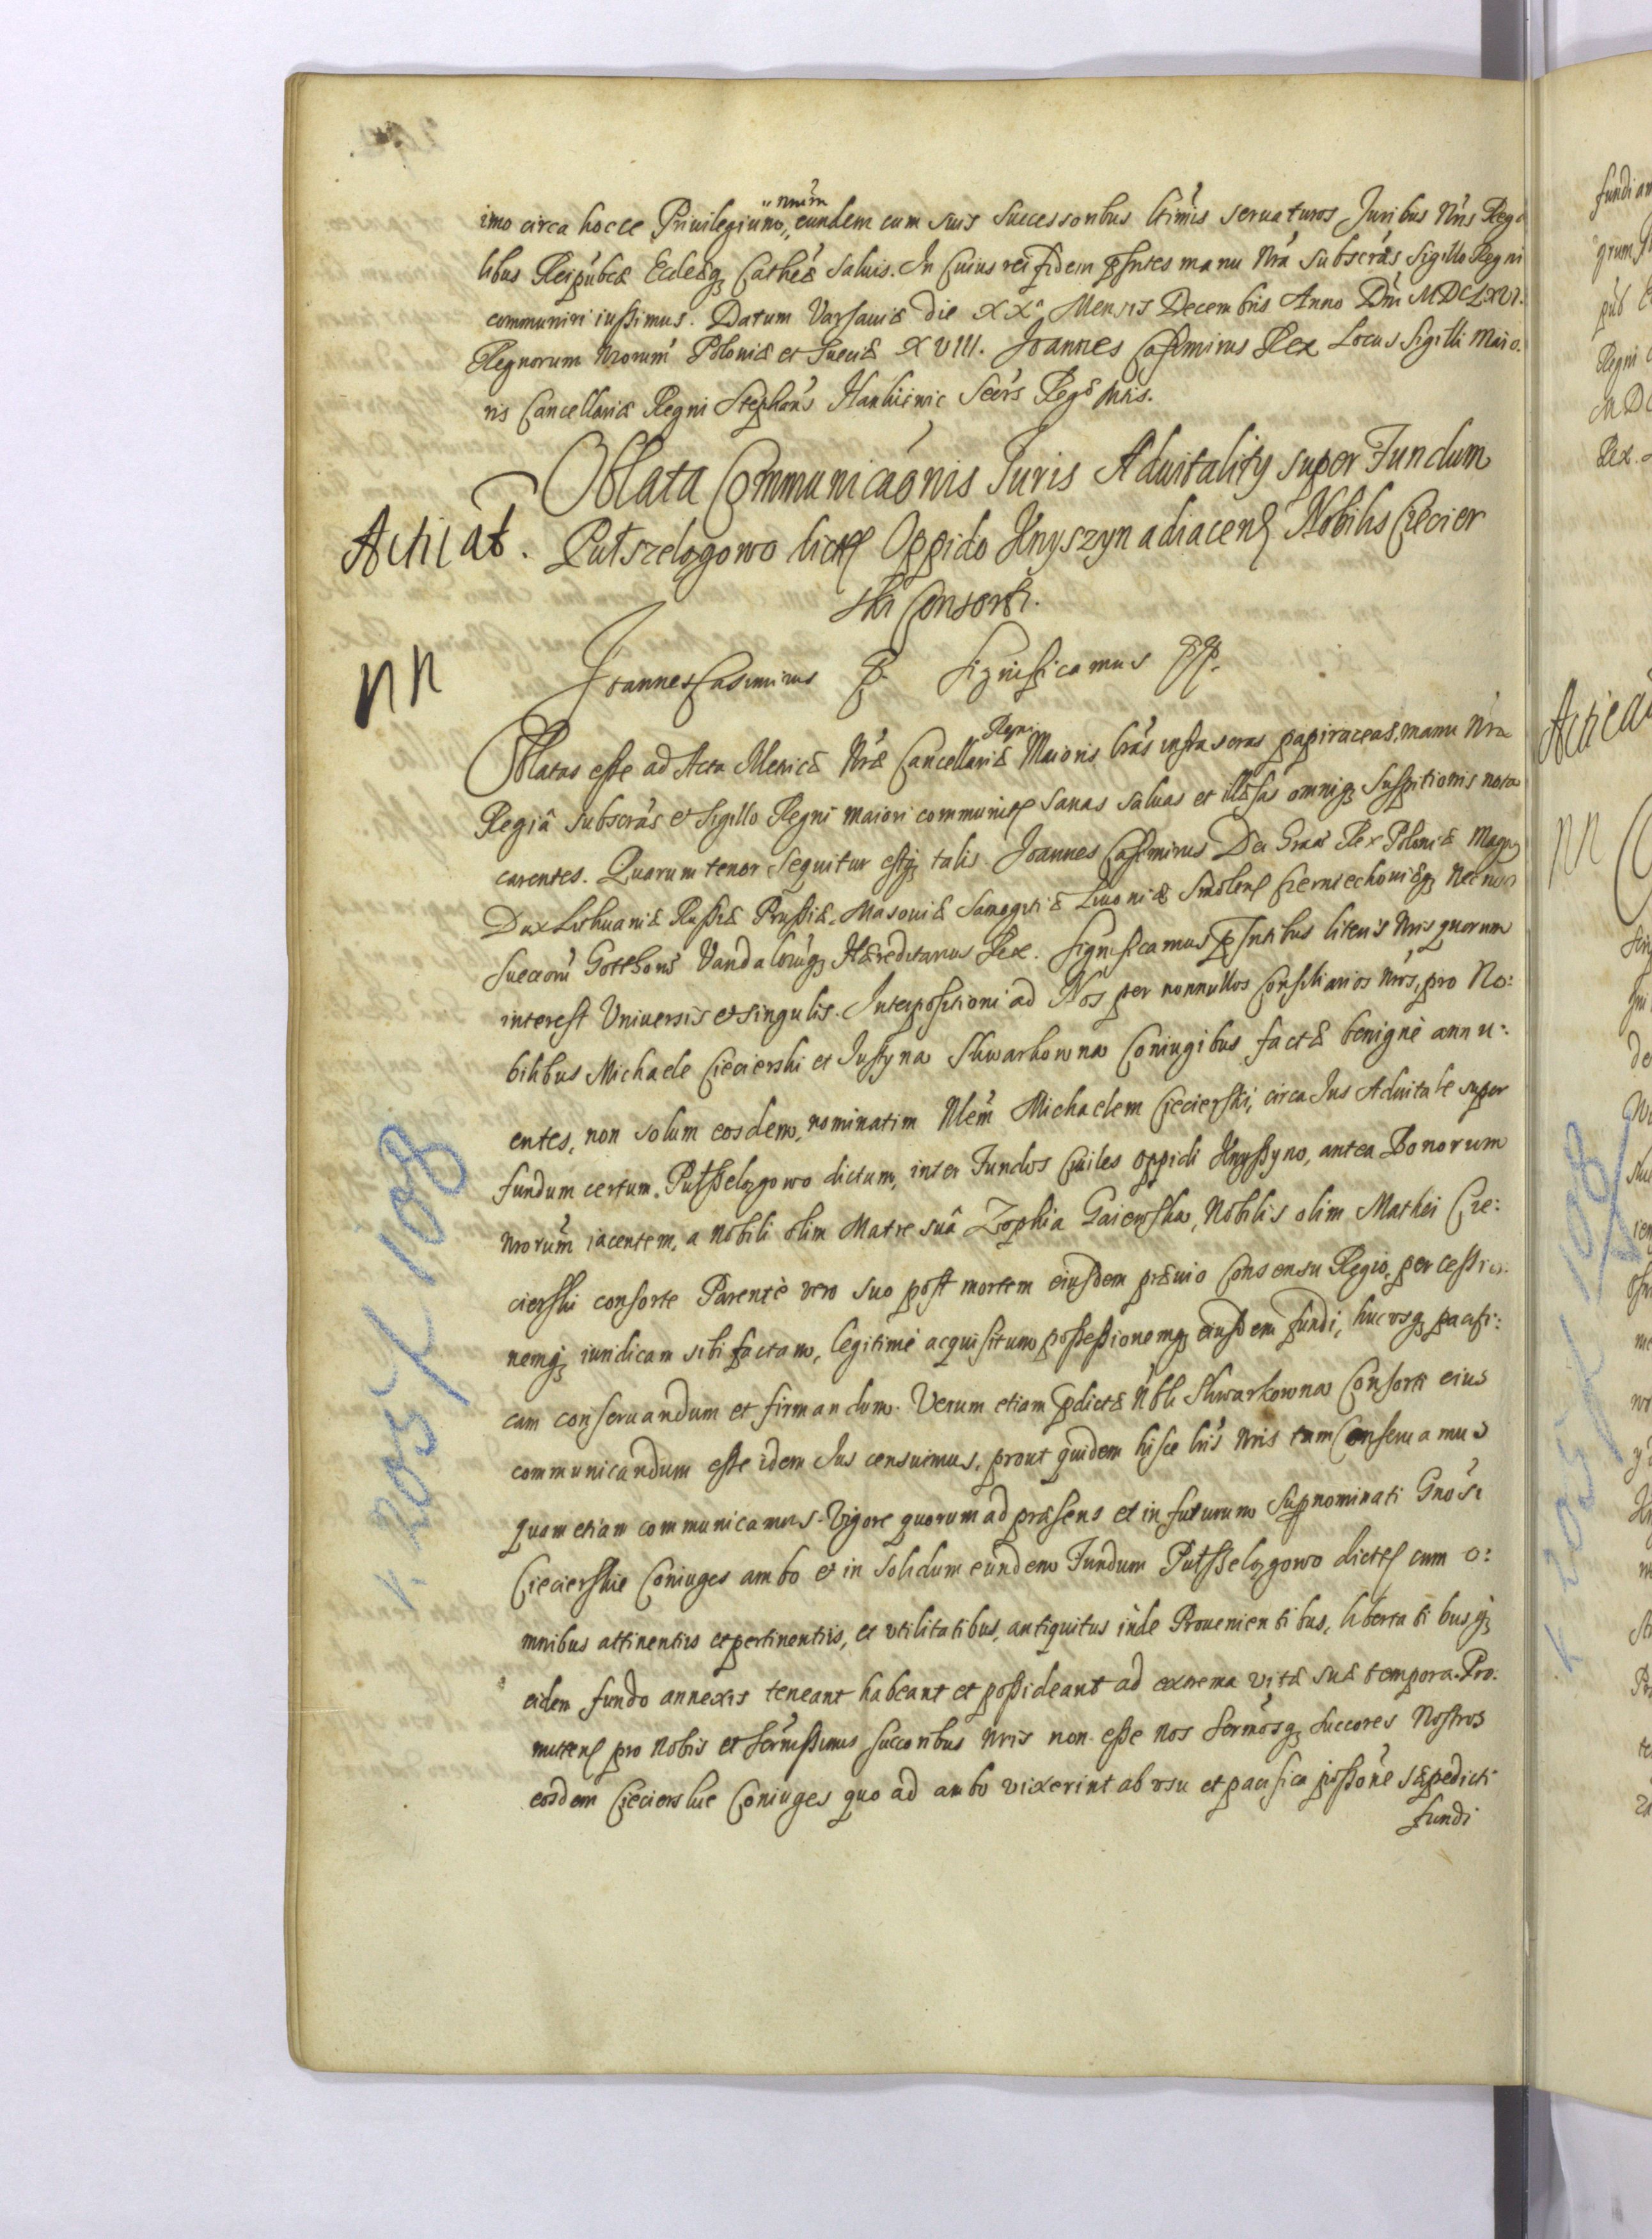 nrum
imo circa hocce Priuilegium, eundem cum suis Successoribus ltimis seruaturos Juribus Nris Rega
libus Reipubcæ Eclesæq Cathcæ Saluis. In Cuius rei fidem pntes manu Nra Subscras Sigillo Regni
communiri iussimus. Datum Varsauiæ Die XXa Mensis Decembris Anno Dni MDCLXVI.
Regnorum Nrorum Poloniæ et Sueciæ XVIII. Joannes Casimirus Rex Locus Sigilli Maio.
ris Cancellariæ Regni Stephans Hankiewic Secrs Regæ Mtis.
Oblata Communicaonis Juris Aduitalitts super Fundum
Acticat. Putszelogowo dict Oppido Knyszyn adiacen Nobilis Ciecier
ski Consorti.
NN
Joannes Casimirus R. Significamus PP.
Regni
Oblatas esse ad Acta Metricæ Nræ Cancellariæ Maioris lras infrascras papiraceas, manu Nra
Regiâ Subscras et Sigillo Regni maiori communit Sanas saluas et illæsas omniq Suspitionis nota
carentes. Quarum tenor Sequitur estq talis. Joannes Casimirus Dei Graa Rex Poloniæ Magq
Dux Lithuaniæ Russiæ Prussiæ Masouiæ Samogitiæ Liuoniæ Smolens Czerniechouiæq Necnon
Suecorum Gotthorum Vandalorumq Hæreditarius Rex. Significamus pntibus literis Nris quorum
interest Uniuersis et singulis. Interpositioni ad Nos per nonnullos Consiliarios Nros, pro No:
bilibus Michaele Ciecierski et Justyna Skwarkowna Coniugibus factæ benignè annu:
entes, non solum eosdem, nominatim Nlem Michaelem Ciecierski, circa Jus Aduitale super
fundum certum Putsselogowo dictum, inter Fundos Ciuiles oppidi Knyssyno, antea Bonorum
Nrorum iacentem, a Nobili olim Matre suâ Zophia Gaiewska, Nobilis olim Mathei Cie:
cierski consorte Parente vero suo post mortem eiusdem præuio Consensu Regio, per cessio
nemq iuridicam sibi factam, legitimè acquisitum possessionemq eiusdem fundi, hucusq pacifi:
cam conseruandum et firmandum. Verum etiam pdictæ Nbli Skwarkowna Consorti eius
communicandum esse idem Jus censuimus, prout quidem hisce lris Nris tam Conseruamus
quam etiam communicamus. Vigore quorum ad præsens et in futurum Supnominati Gnosi
Ciecierskie Coniuges ambo et in solidum eundem Fundum Putsselogowo dict cum o:
mnibus attinentiis et pertinentiis, et vtilitatibus, antiquitus inde Prouenientibus, libertatibusq
eidem fundo annexis teneant habeant et possideant ad extrema vitæ suæ tempora. Pro.
mitten pro Nobis et Sermissimis Succoribus Nris non esse Nos Sermosq Succores Nostros
eosdem Ciecierskie Coniuges quo ad ambo vixerint ab vsu et pacifica possone sæpedicti
fundi
K. 205 X 108
Acticat
NN
K 205 X 108